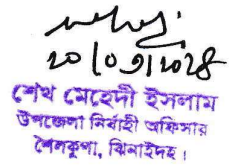 ২০|০৩|২০২৪
শেখ মেহেদী ইসলাম
উপজেলা নির্বাহী অফিসার
শৈলকুপা, ঝিনাইদহ।